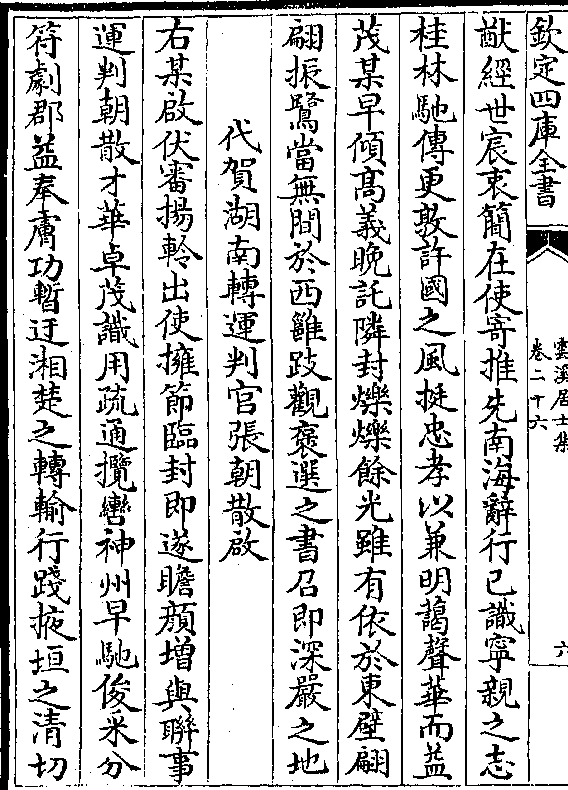 欽定四庫全書
雲溪居士集
卷二十六
六
猷經世宸衷簡在使寄推先南海辭行已識寧親之志
桂林馳傳更敦許國之風挺忠孝以兼明藹聲華而益
茂某早傾髙義晚託隣封爍爍餘光雖有依於東壁翩
翩振鷺當無間於西雝跂觀褒選之書召即深嚴之地
代賀湖南轉運判官張朝散啟
右某啟伏審揚軨出使擁節臨封即遂瞻顔増與聯事
運判朝散才華卓茂識用疏通攬轡神州早馳俊采分
符劇郡益奉膚功暫迂湘楚之轉輸行踐掖垣之清切